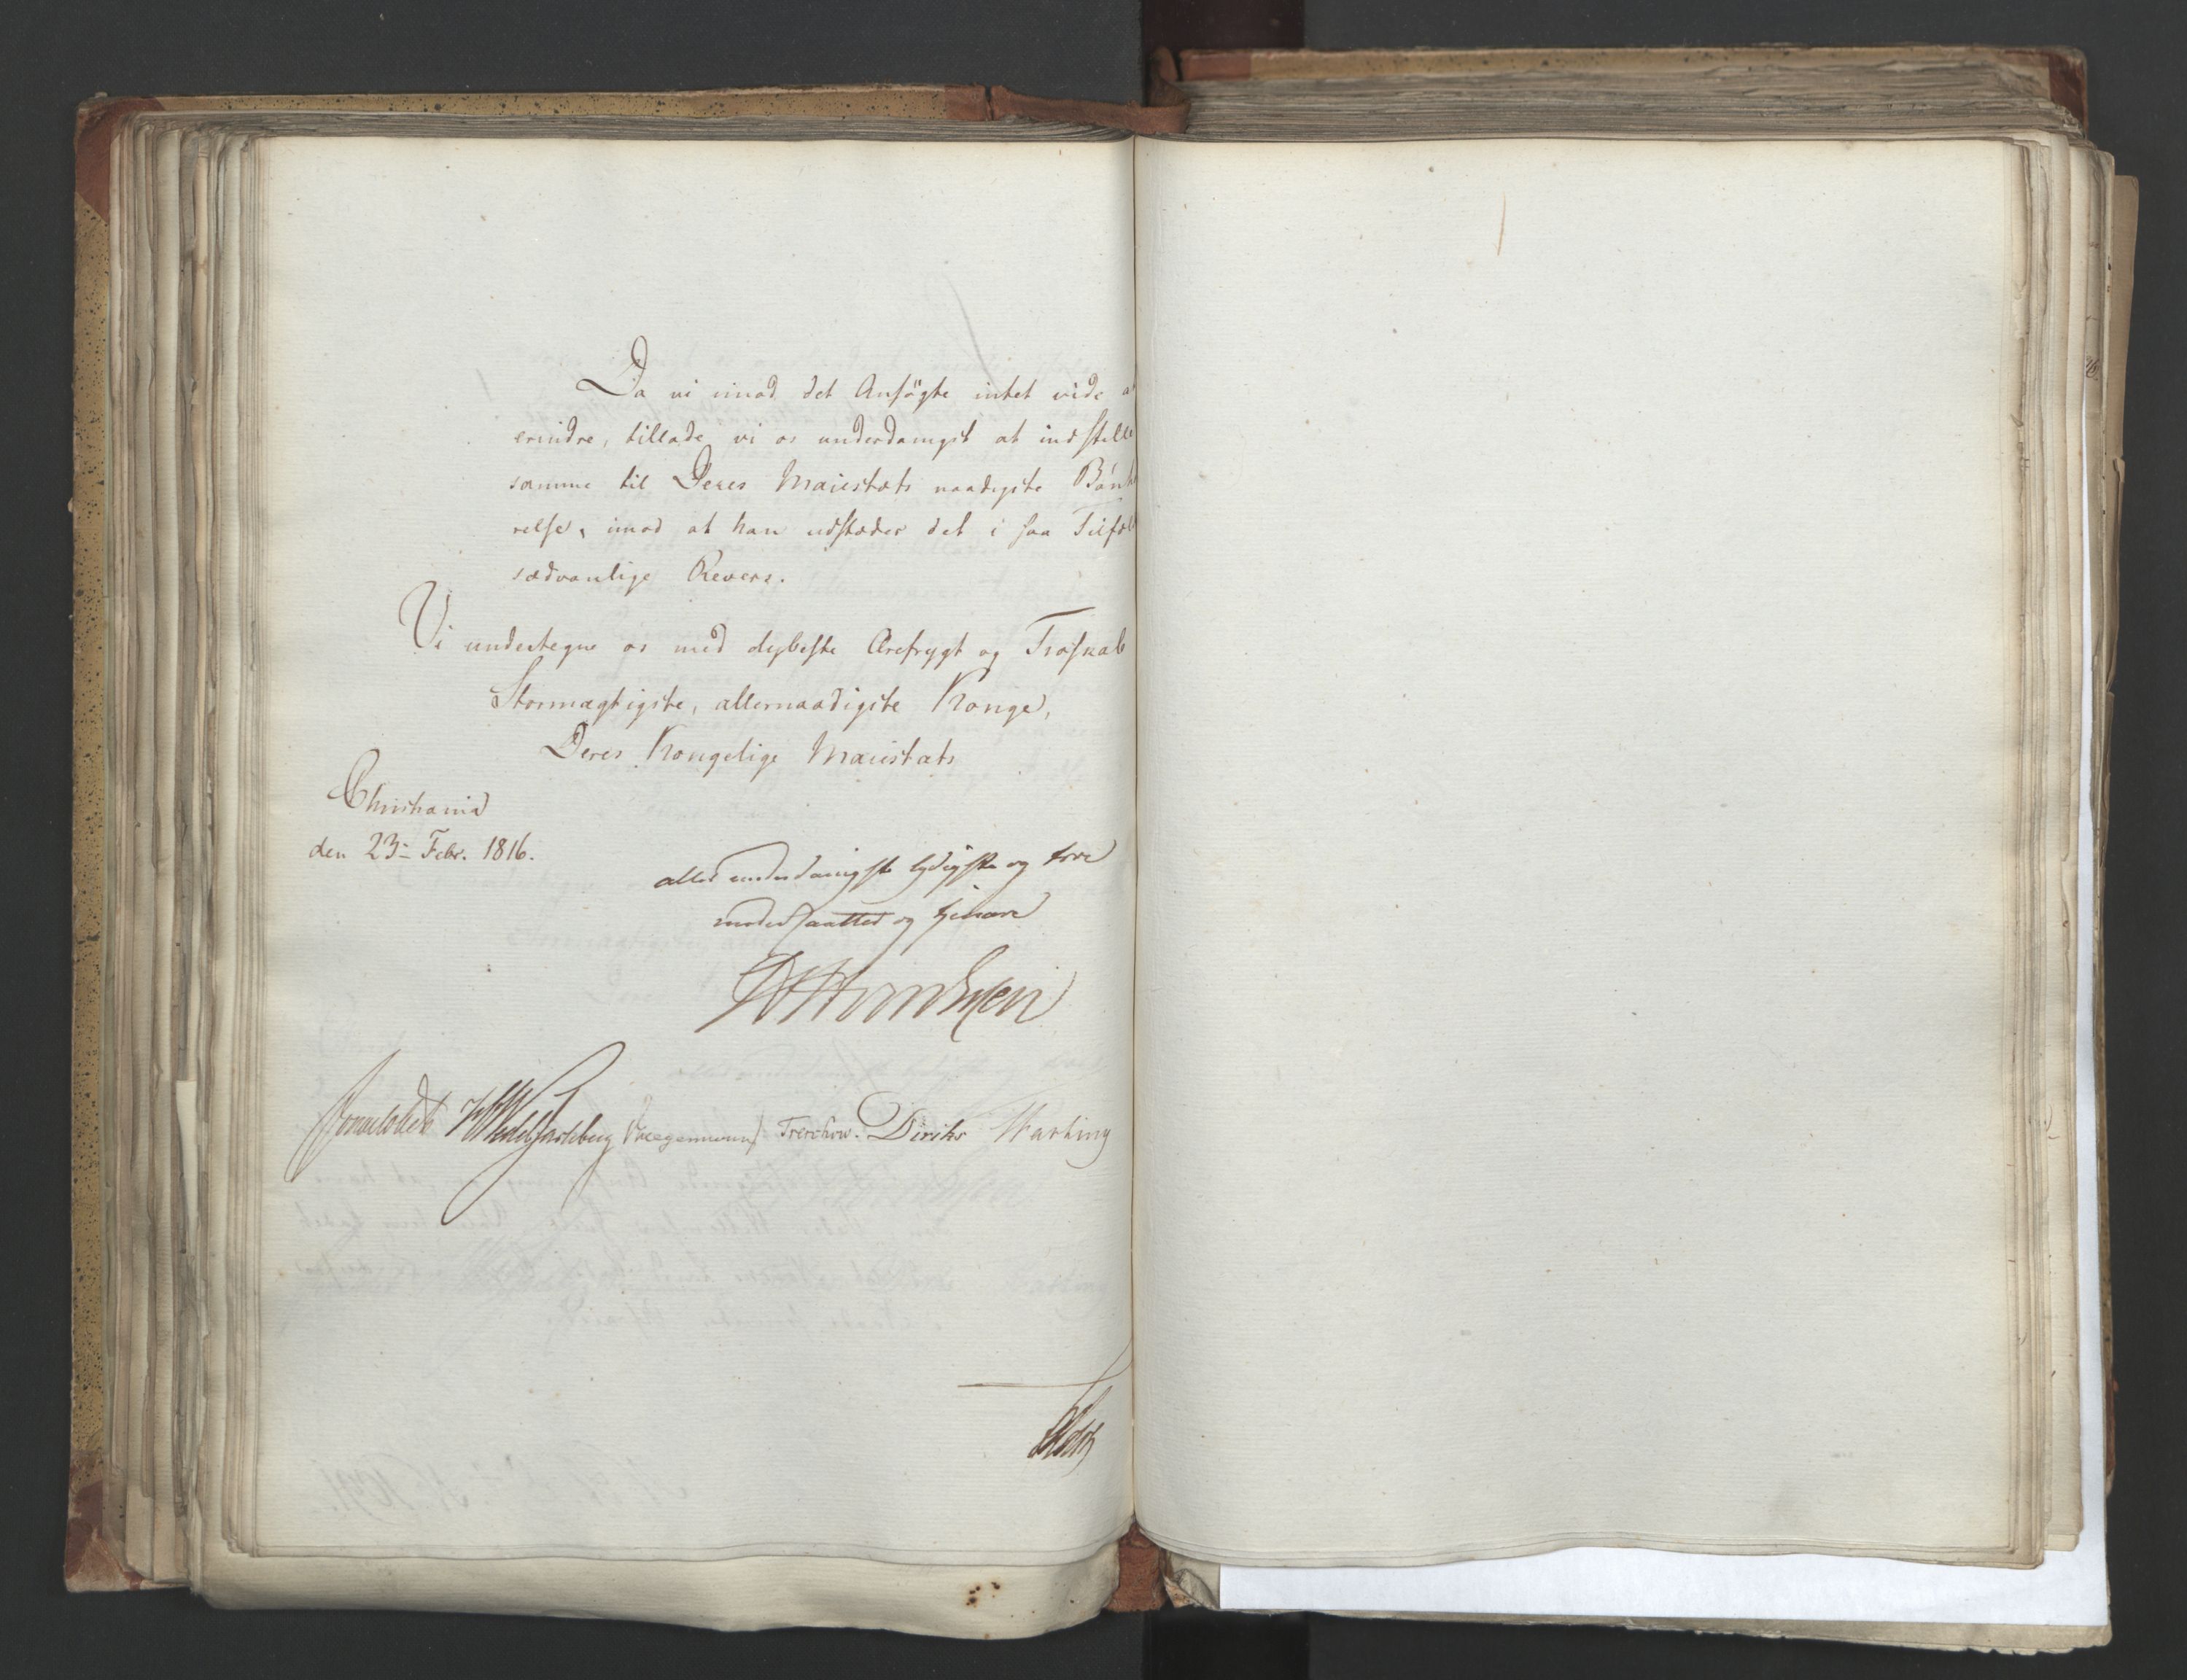 Da vi imod det Ansögte intet vide a
erindre, tillade vi os underdanigst at indstille
samme til Deres Maiestæts naadigste Bönhö
relse, imod at han udstæder det i saa Tilfæl
sædvanlige Revers.
Vi undertegne os med dybeste Ærefrygt og Troskab
Stormægtigste, allernaadigste Konge,
Deres Kongelige Maiestæts
Christiania
den 23de Febr. 1816.
allerunderdanigste lydigste og troe
undersaatter og tienere
Sommerhielm HWedelJarlsberg Krieger Treschow. Diriks Hartung
Holst